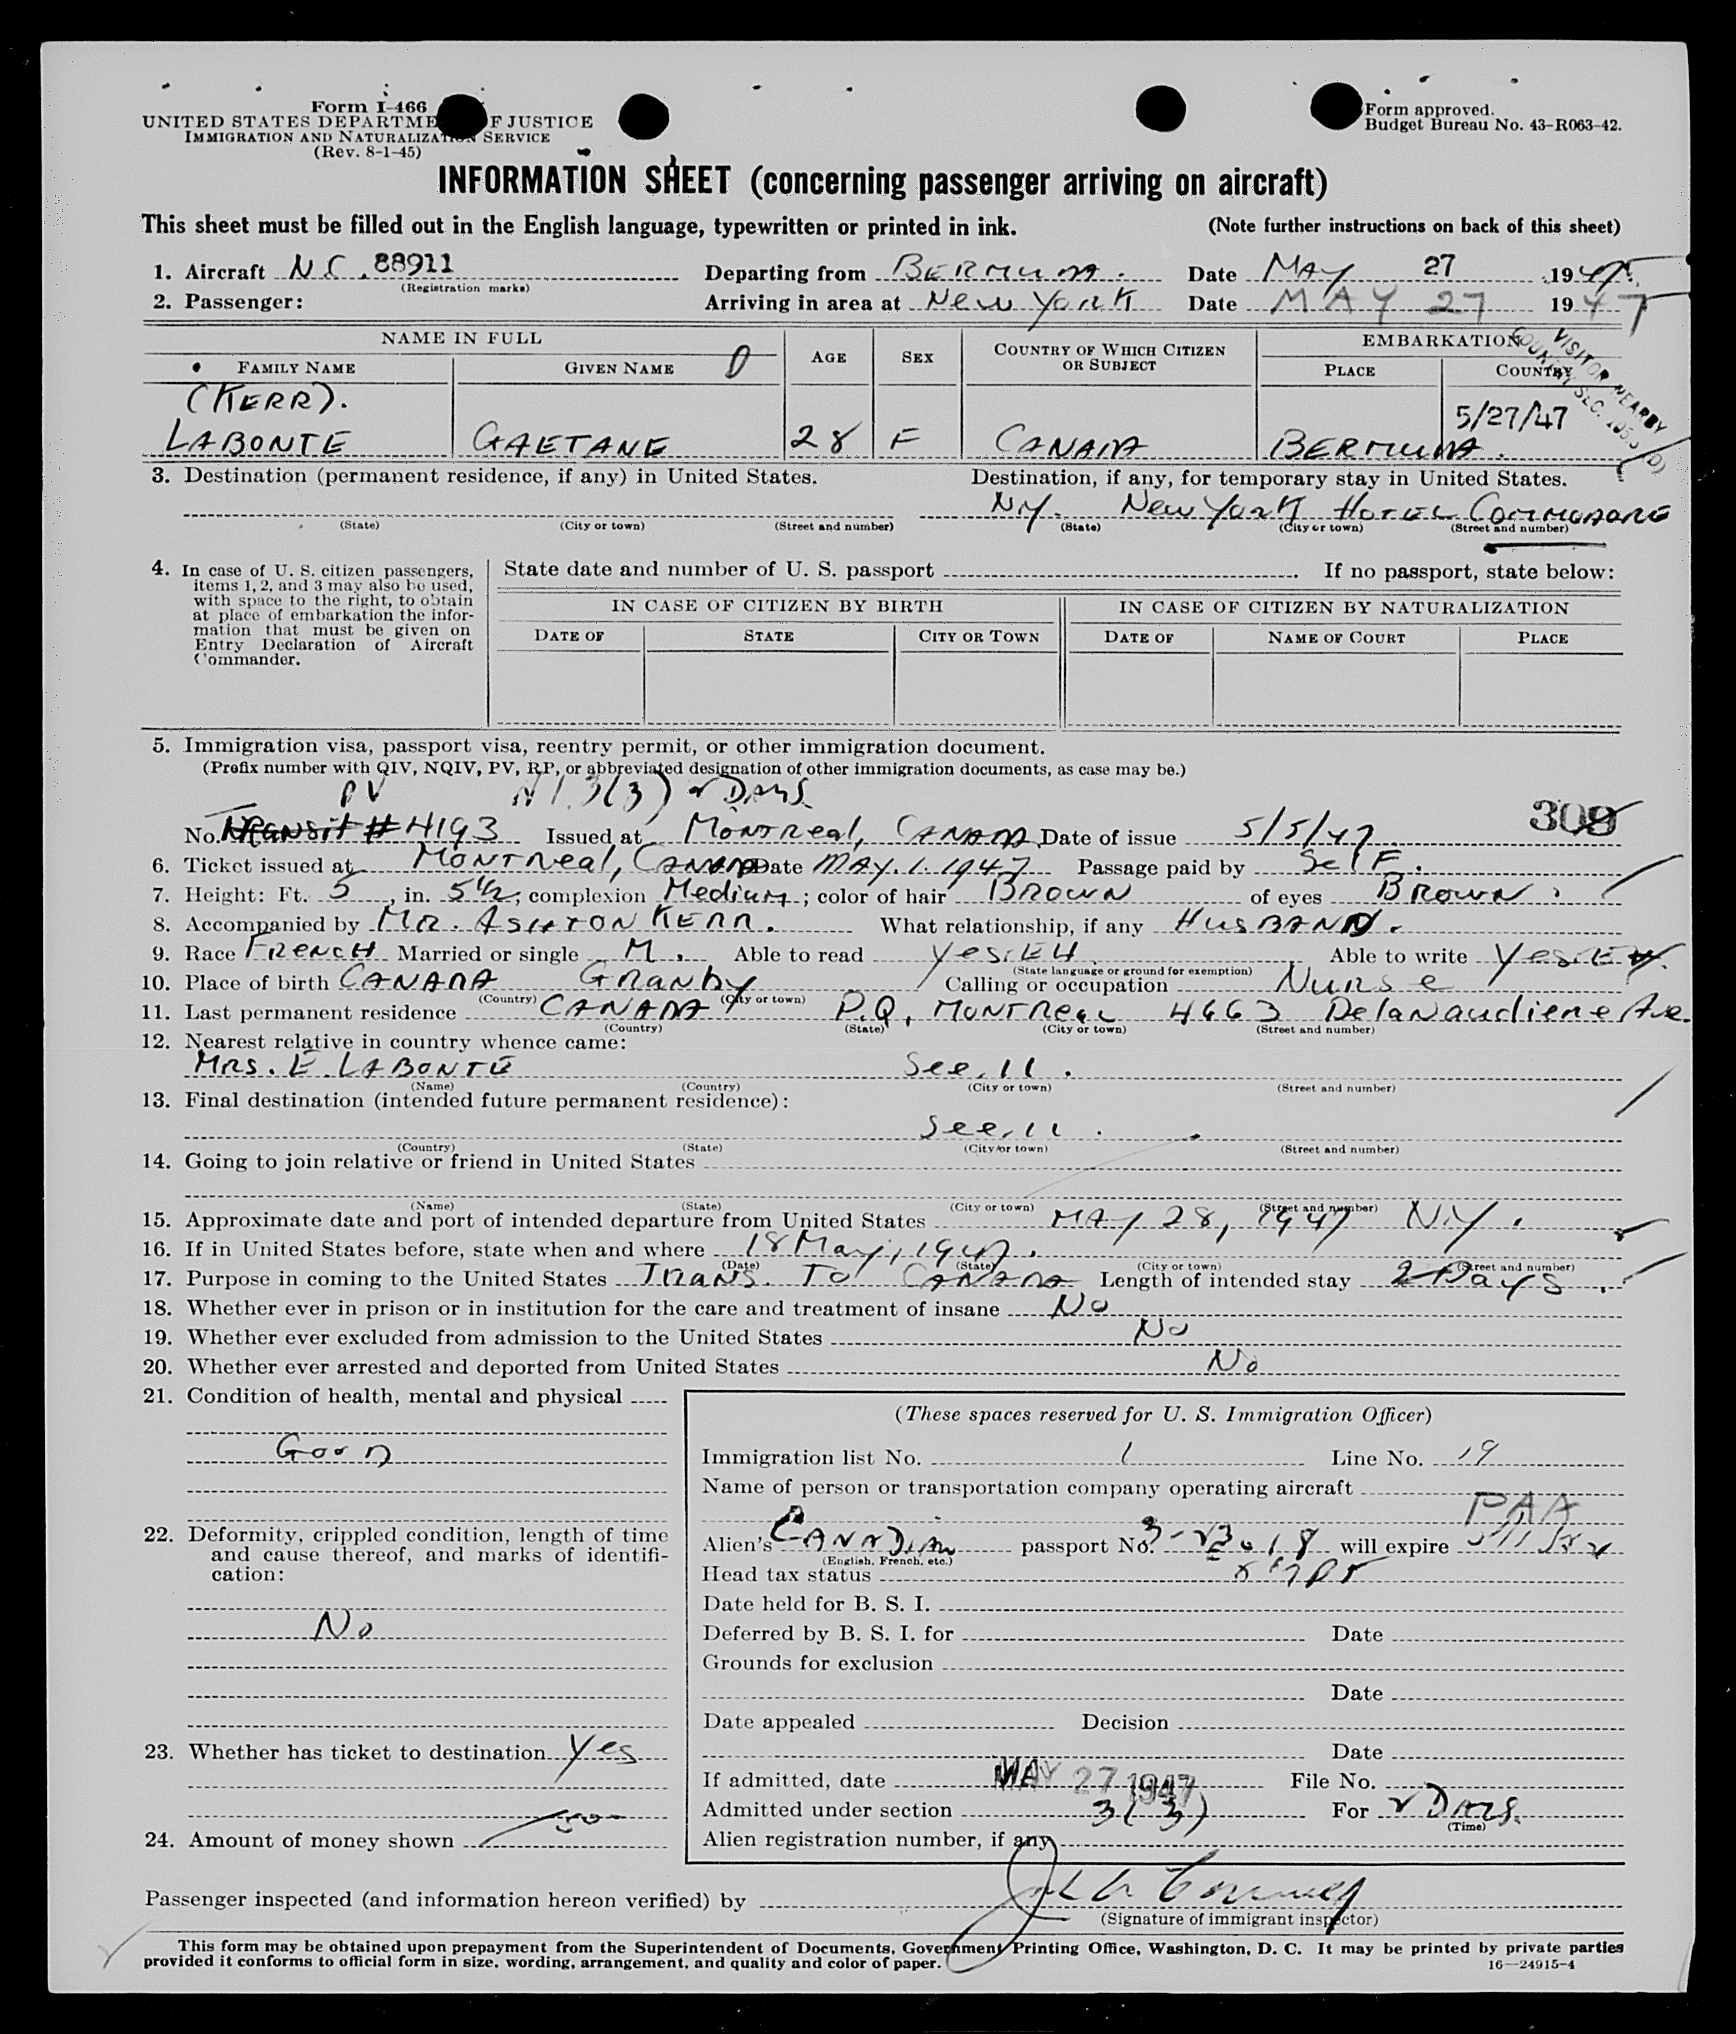 Form I-466
UNITED STATES DEPARTME F JUSTICE
IMMIGRATION AND NATURALIZATION SERVICE
(Rev. 8-1-45)
Form approved.
Budget Bureau No. 43-R063-42.
INFORMATION SHEET (concerning passenger arriving on aircraft)
This sheet must be filled out in the English language, typewritten or printed in ink. (Note further instructions on back of this sheet)
1. Aircraft N.C. 88911 Departing from BERMUDA. Date MAY 27 1947.
(Registration marks)
2. Passenger: Arriving in area at NEW YORK Date MAY 27 1947
NAME IN FULL
FAMILY NAME GIVEN NAME AGE SEX COUNTRY OF WHICH CITIZEN OR SUBJECT EMBARKATION PLACE COUNTRY
VISITOR NEARBY
(KERR).
5/27/47
LABONTE GAETANE 28 F CANADA BERMUDA.
3. Destination (permanent residence, if any) in United States. Destination, if any, for temporary stay in United States.
NY. NEW YORK HOTEL COMMODORE
(State) (City or town) (Street and number) (State) (City or town) (Street and number)
4. In case of U. S. citizen passengers, items 1, 2, and 3 may also be used, with space to the right, to obtain at place of embarkation the information that must be given on Entry Declaration of Aircraft Commander.
State date and number of U. S. passport . If no passport, state below:
IN CASE OF CITIZEN BY BIRTH IN CASE OF CITIZEN BY NATURALIZATION
DATE OF STATE CITY OR TOWN DATE OF NAME OF COURT PLACE
5. Immigration visa, passport visa, reentry permit, or other immigration document.
(Prefix number with QIV, NQIV, PV, RP, or abbreviated designation of other immigration documents, as case may be.)
PV 3(3) 2 DAYS.
308
No. Transit # 4193 Issued at MONTREAL, CANADA Date of issue 5/5/47
6. Ticket issued at MONTREAL, CANADA Date MAY. 1. 1947 Passage paid by SELF.
7. Height: Ft. 5, in. 5½; complexion Medium; color of hair BROWN of eyes BROWN.
8. Accompanied by MR. ASHTON KERR. What relationship, if any HUSBAND.
9. Race FRENCH Married or single M. Able to read Yes. EH Able to write Yes.
(State language or ground for exemption)
10. Place of birth CANADA GRANBY Calling or occupation NURSE
(Country) (City or town)
11. Last permanent residence CANADA P.Q, MONTREAL 4663 Delanaudiere Ave.
(Country) (State) (City or town) (Street and number)
12. Nearest relative in country whence came:
MRS. E. LABONTE See. 11.
(Name) (Country) (City or town) (Street and number)
13. Final destination (intended future permanent residence):
See. 11.
(Country) (State) (City or town) (Street and number)
14. Going to join relative or friend in United States
(Name) (State) (City or town) (Street and number)
15. Approximate date and port of intended departure from United States MAY 28, 1947 N.Y.
16. If in United States before, state when and where 18 May, 1947.
(Date) (State) (City or town) (Street and number)
17. Purpose in coming to the United States TRANS. TO CANADA Length of intended stay 2 Days.
18. Whether ever in prison or in institution for the care and treatment of insane No
19. Whether ever excluded from admission to the United States No
20. Whether ever arrested and deported from United States No
21. Condition of health, mental and physical
GOOD
22. Deformity, crippled condition, length of time and cause thereof, and marks of identification:
No
23. Whether has ticket to destination Yes
24. Amount of money shown 50-
(These spaces reserved for U. S. Immigration Officer)
Immigration list No. 1 Line No. 19
Name of person or transportation company operating aircraft
PAA
Alien's CANADIAN passport No. will expire
(English, French, etc.)
Head tax status
Date held for B. S. I.
Deferred by B. S. I. for Date
Grounds for exclusion
Date
Date appealed Decision
Date
If admitted, date MAY 27 1947 File No.
Admitted under section 3(3) For 2 DAYS.
(Time)
Alien registration number, if any
Passenger inspected (and information hereon verified) by
(Signature of immigrant inspector)
This form may be obtained upon prepayment from the Superintendent of Documents, Government Printing Office, Washington, D. C. It may be printed by private parties
provided it conforms to official form in size, wording, arrangement, and quality and color of paper.
16—24915-4